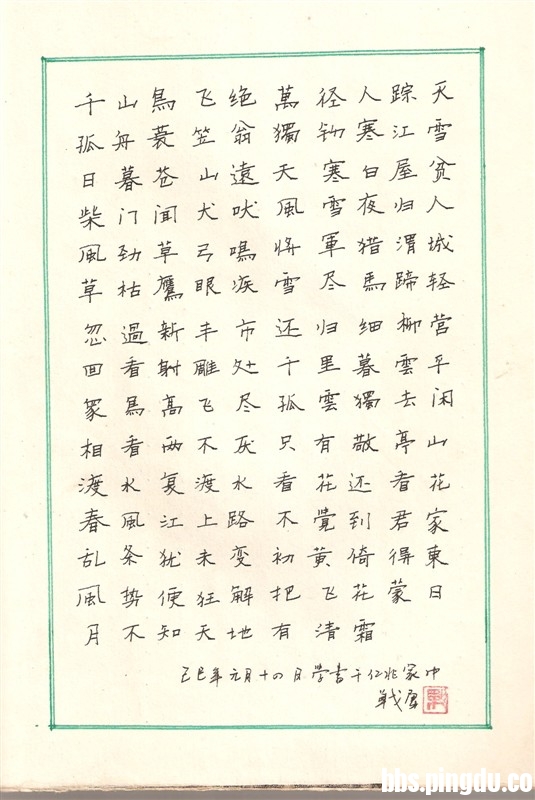 千山鳥飞绝萬径人踪灭
孤舟蓑笠翁獨钓寒江雪
日暮苍山遠天寒白屋贫
柴门闻犬吠風雪夜归人
風劲草弓鳴将軍猎渭城
草枯鷹眼疾雪尽馬蹄轻
忽過新丰市还归细柳营
回看射雕处千里暮雲平
众鳥高飞尽孤雲獨去闲
相看两不厌只有敬亭山
渡水复渡水看花还看花
春風江上路不覺到君家
乱条犹未变初黄倚得東
風势便狂解把飞花蒙日
月不知天地有清霜
己巳年元月十四日学書于仁兆家中
bbs.pingdu.co